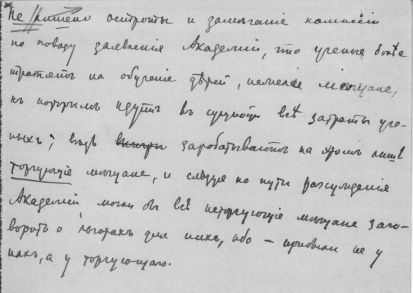 Не лишено остроты и замечание комиссіи
по поводу заявленія Академіи, что ученые болѣе
тратятъ на обученіе дѣтей, нежели мѣщане,
къ которымъ идутъ въ сущности всѣ затраты уче-
ныхъ; вѣдь зарабатываютъ на этомъ лишь
торгующіе мѣщане, и слѣдуя по пути разсужденія
Академіи, могли бы всѣ неторгующіе мѣщане заго-
ворить о льготахъ для нихъ, ибо — прибыли не у
нихъ, а у торгующаго.